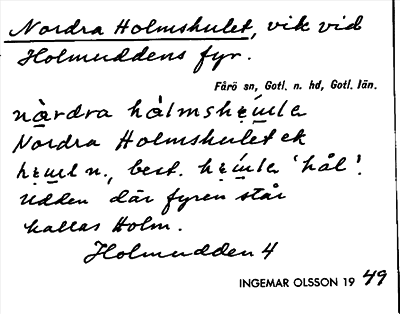 Nordra Holmshulet, vik vid
Holmuddens fyr.
Fårö sn, Gotl. n. hd, Gotl. län.
nà̱rdra hàlmshe̱u̱le
Nordra Holmshulet ek
he̱u̱l n., best. he̱u̱le 'hål'.
Udden där fyren står
kallas Holm.
Holmudden 4
INGEMAR OLSSON 19 49